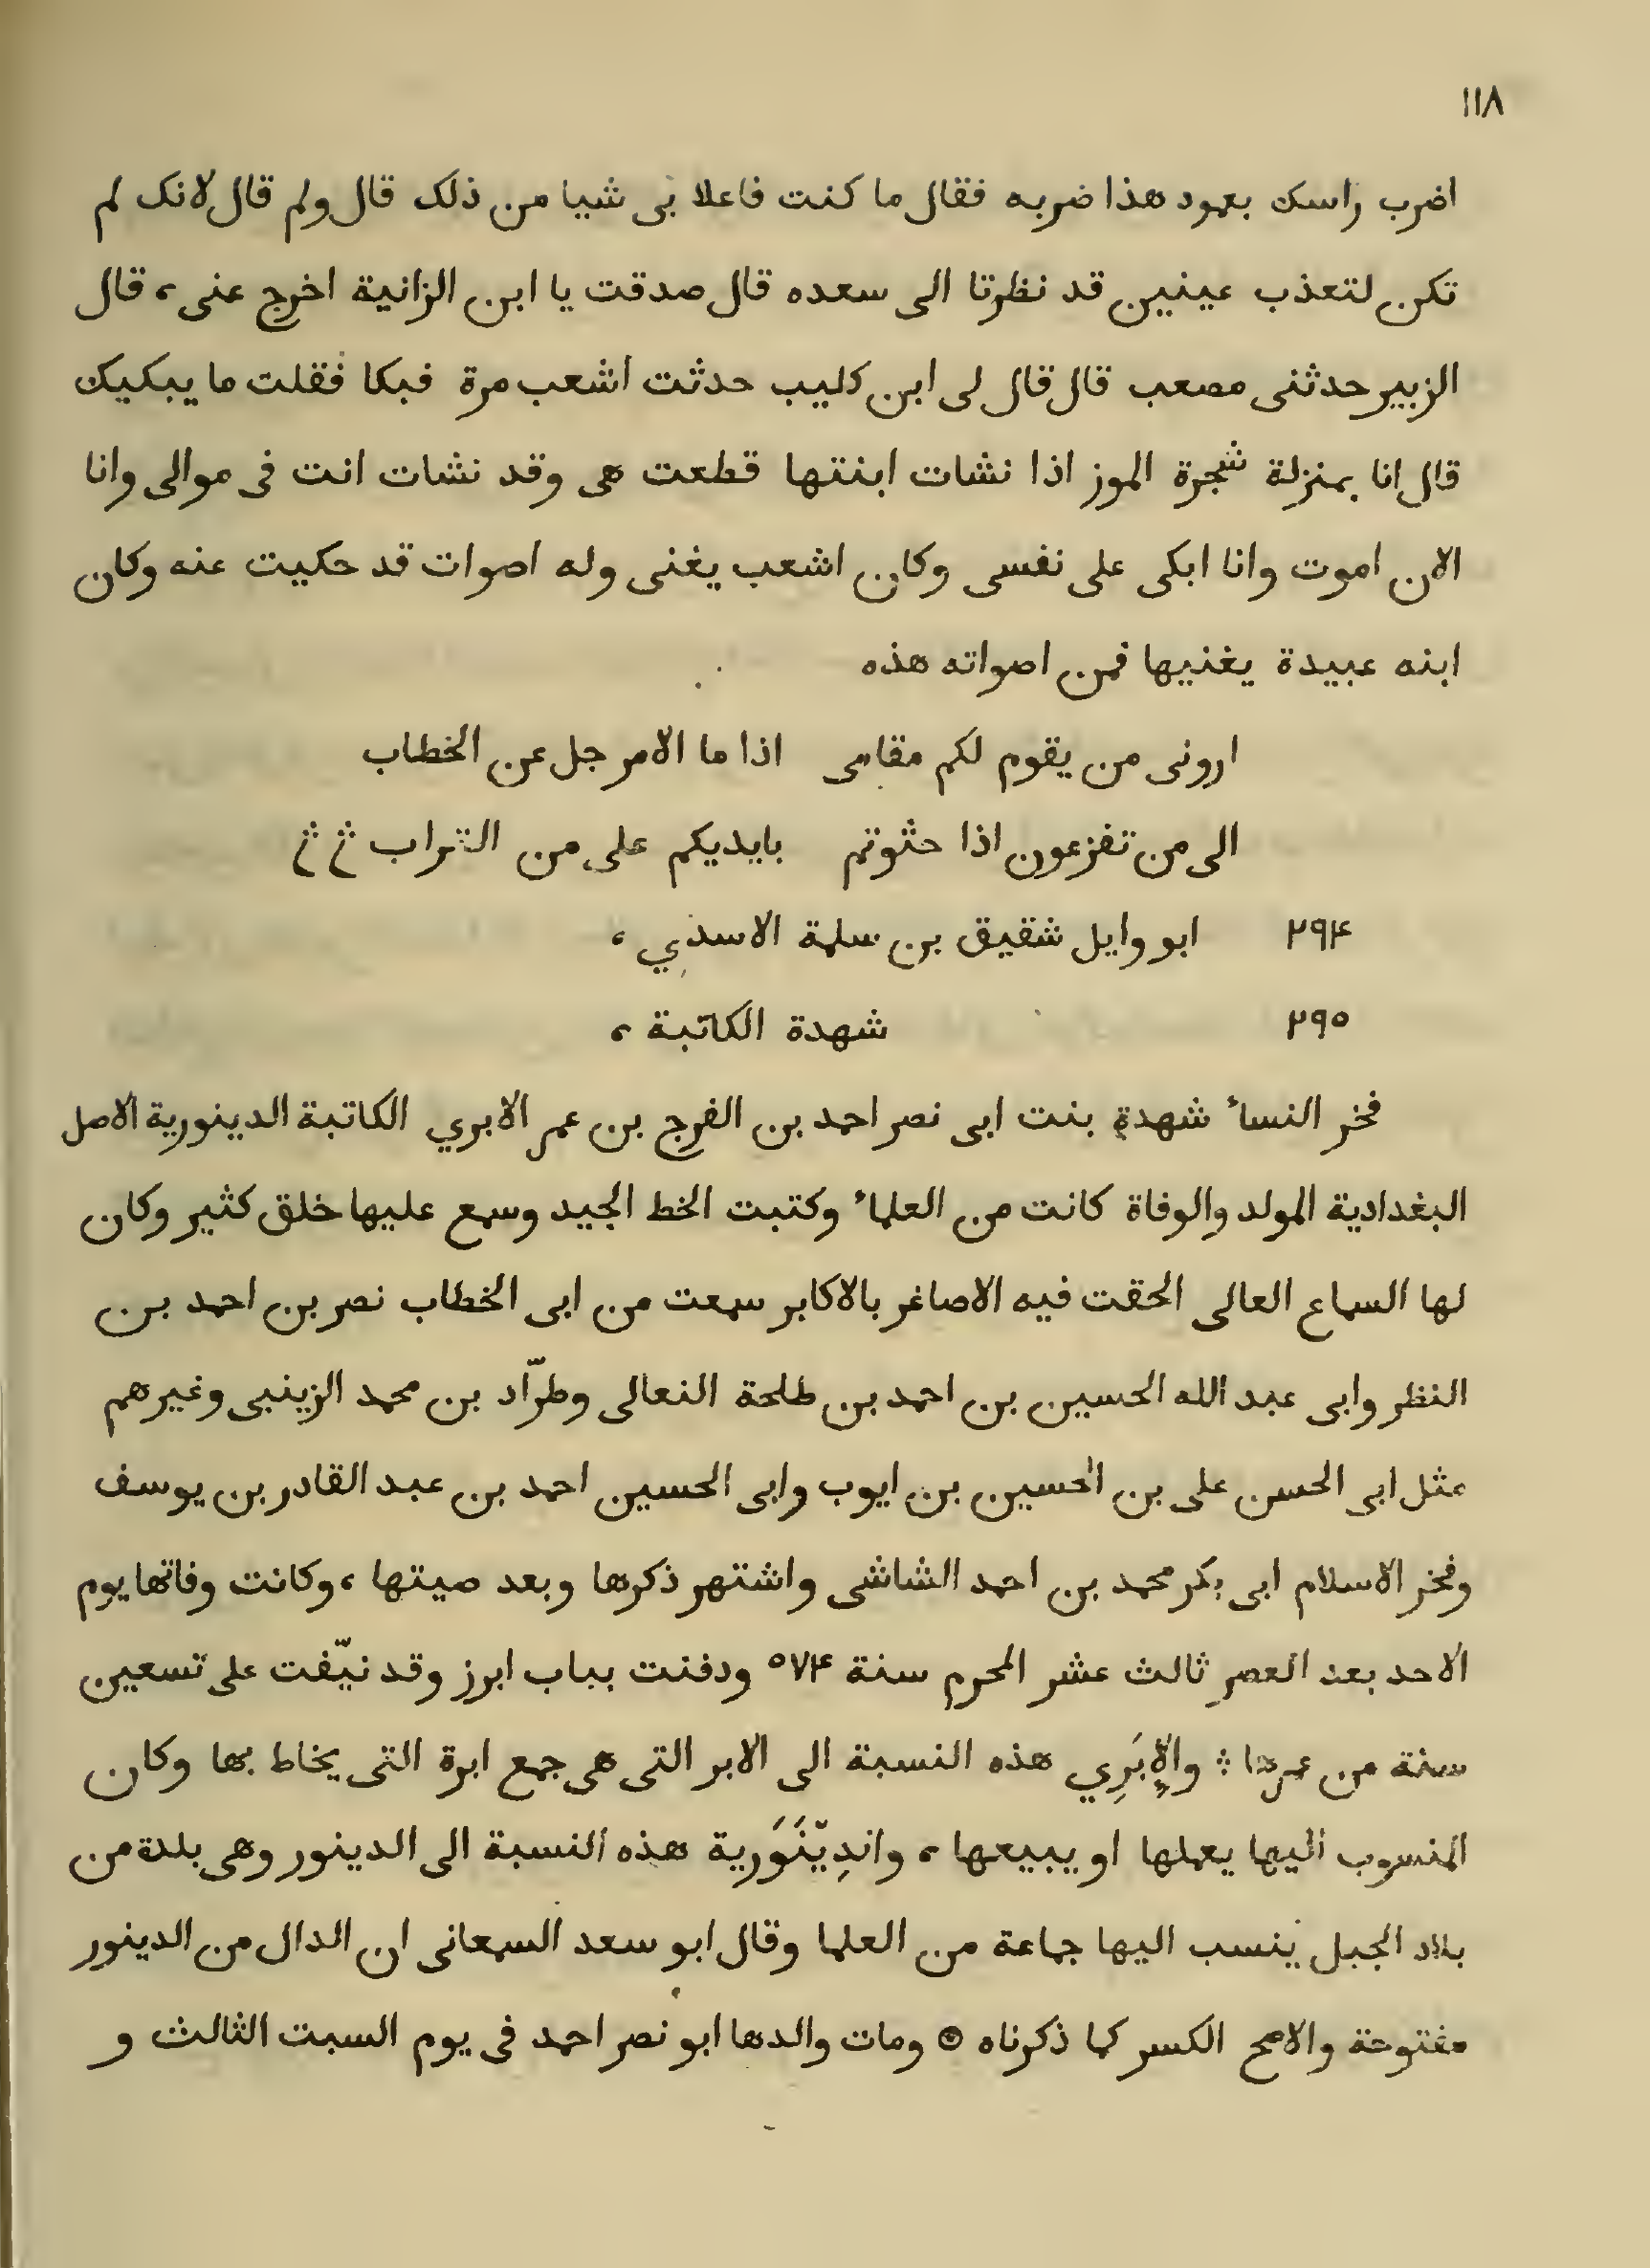 ١١٨
اضرب راسك بعمود هذا ضربه فقال ما كنت فاعلا بى شيا من ذلك قال ولم قال لانك لم
تكن لتعذب عينين قد نظرتا الى سعده قال صدقت يا ابن الزانية اخرج عنى، قال
الزبير حدثنى مصعب قال قال لى ابن كليب حدثت اشعب مرة فبكا فقلت ما يبكيك
قال انا بمنزلة شجرة الموز اذا نشات ابنتها قطعت هى وقد نشات انت فى موالى وانا
الان اموت وانا ابكى على نفسى وكان اشعب يغنى وله اصوات قد حكيت عنه وكان
ابنه عبيدة يغنيها فمن اصواته هذه
ارونى من يقوم لكم مقامى اذا ما الامر جل عن الخطاب
الى من تفزعون اذا حثوتم بايديكم على من التراب
٢٩۴ ابو وايل شقيق بن سلمة الاسدي،
٢٩٥ شهدة الكاتبة،
فخر النساء شهدة بنت ابى نصر احمد بن الفرج بن عمر الابري الكاتبة الدينورية الاصل
البغدادية المولد والوفاة كانت من العلماء وكتبت الخط الجيد وسمع عليها خلق كثير وكان
لها السماع العالى الحقت فيه الاصاغر بالاكابر سمعت من ابى الخطاب نصر بن احمد بن
النظر وابى عبد الله الحسين بن احمد بن طلحة النعالى وطرّاد بن محمد الزينبى وغيرهم
مثل ابى الحسن على بن الحسين بن ايوب وابى الحسين احمد بن عبد القادر بن يوسف
وفخر الاسلام ابى بكر محمد بن احمد الشاشى واشتهر ذكرها وبعد صيتها، وكانت وفاتها يوم
الاحد بعد العصر ثالث عشر المحرم سنة ٥٧۴ ودفنت بباب ابرز وقد نيّفت على تسعين
سنة من عمرها ؞ والإِبَرِي هذه النسبة الى الابر التى هى جمع ابرة التى يخاط بها وكان
المنسوب اليها يعملها او يبيعها، والدِيّنَوَرية هذه النسبة الى الدينور وهى بلدة من
بلاد الجبل ينسب اليها جماعة من العلما وقال ابو سعد السمعانى ان الدال من الدينور
مفتوحة والاصح الكسر كما ذكرناه ۞ ومات والدها ابو نصر احمد فى يوم السبت الثالث و